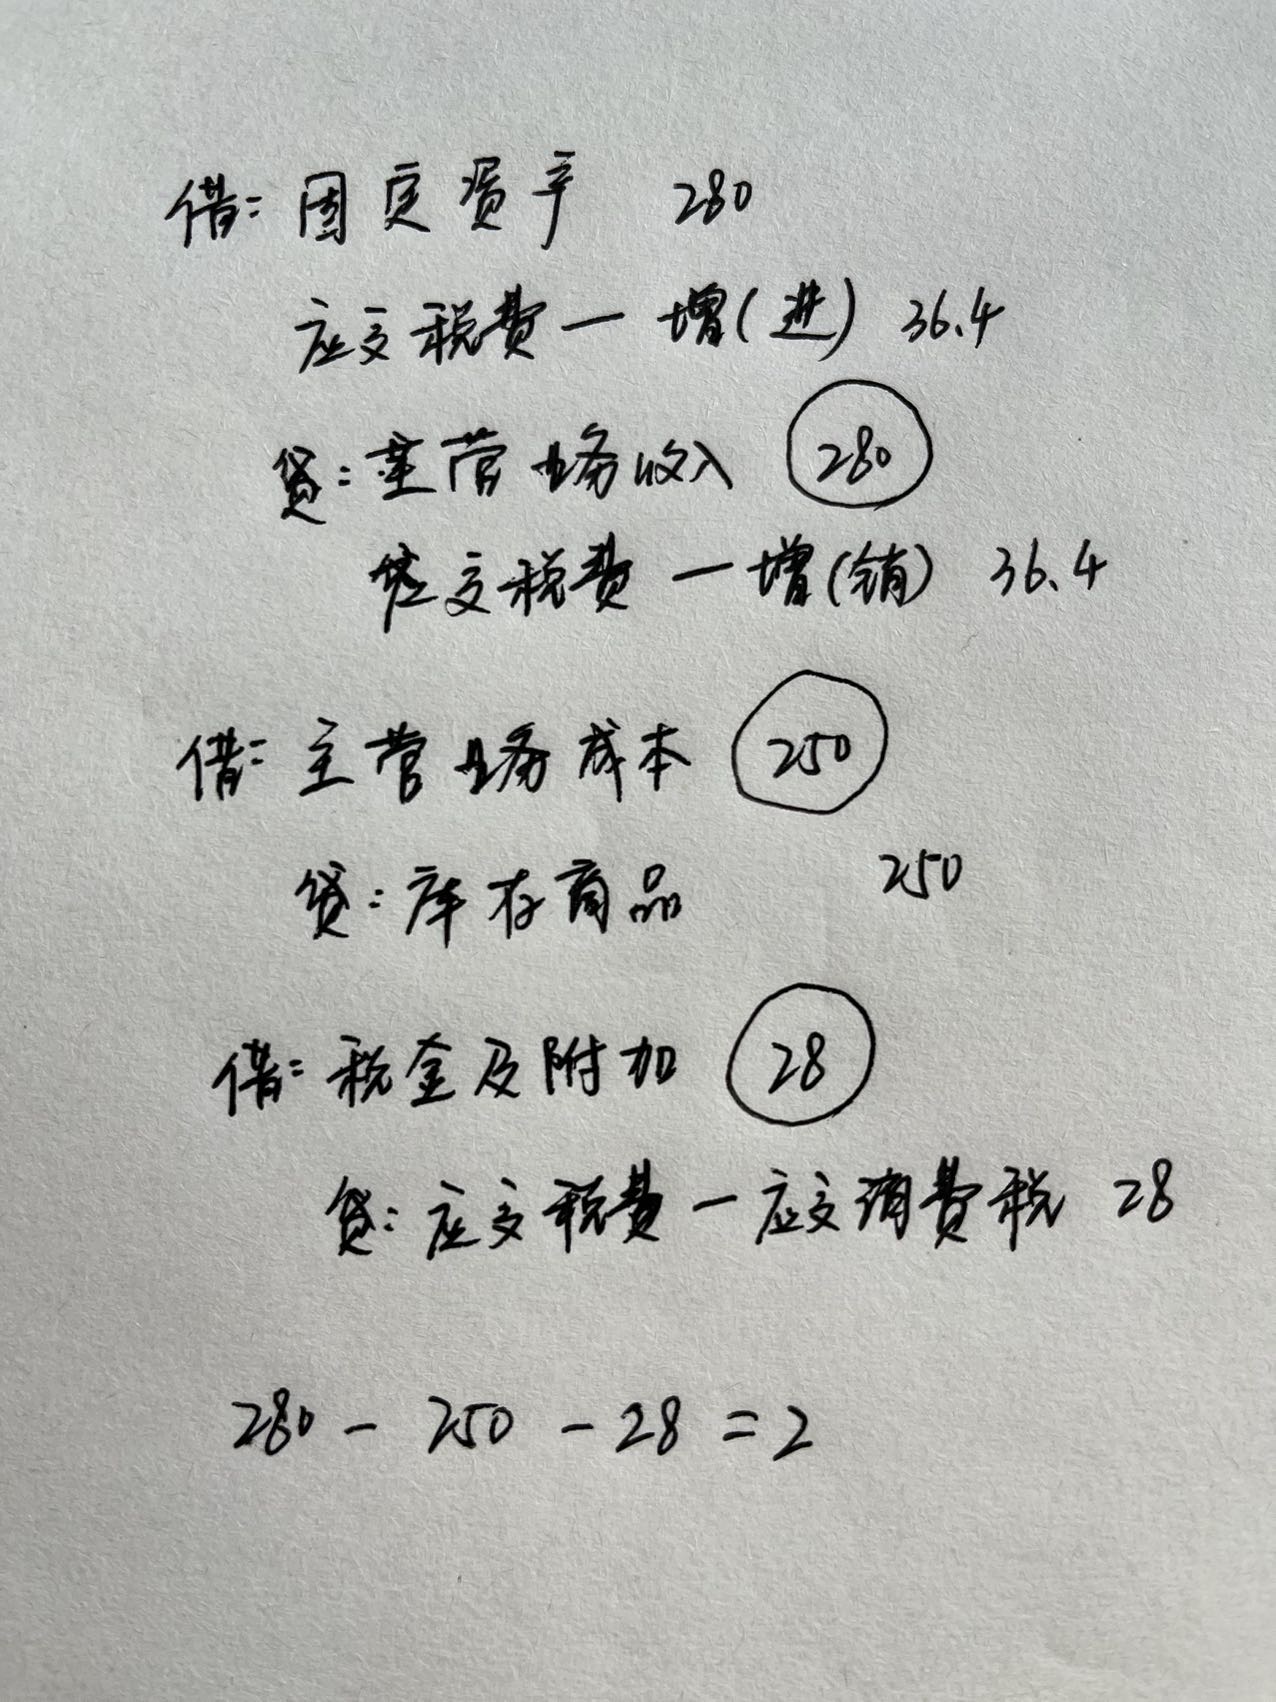 借：固定资产 280
应交税费一增(进) 36.4
贷：主营业务收入 280
应交税费一增(销) 36.4
借：主营业务成本 250
贷：库存商品 250
借：税金及附加 28
贷：应交税费一应交消费税 28
280 - 250 - 28 = 2